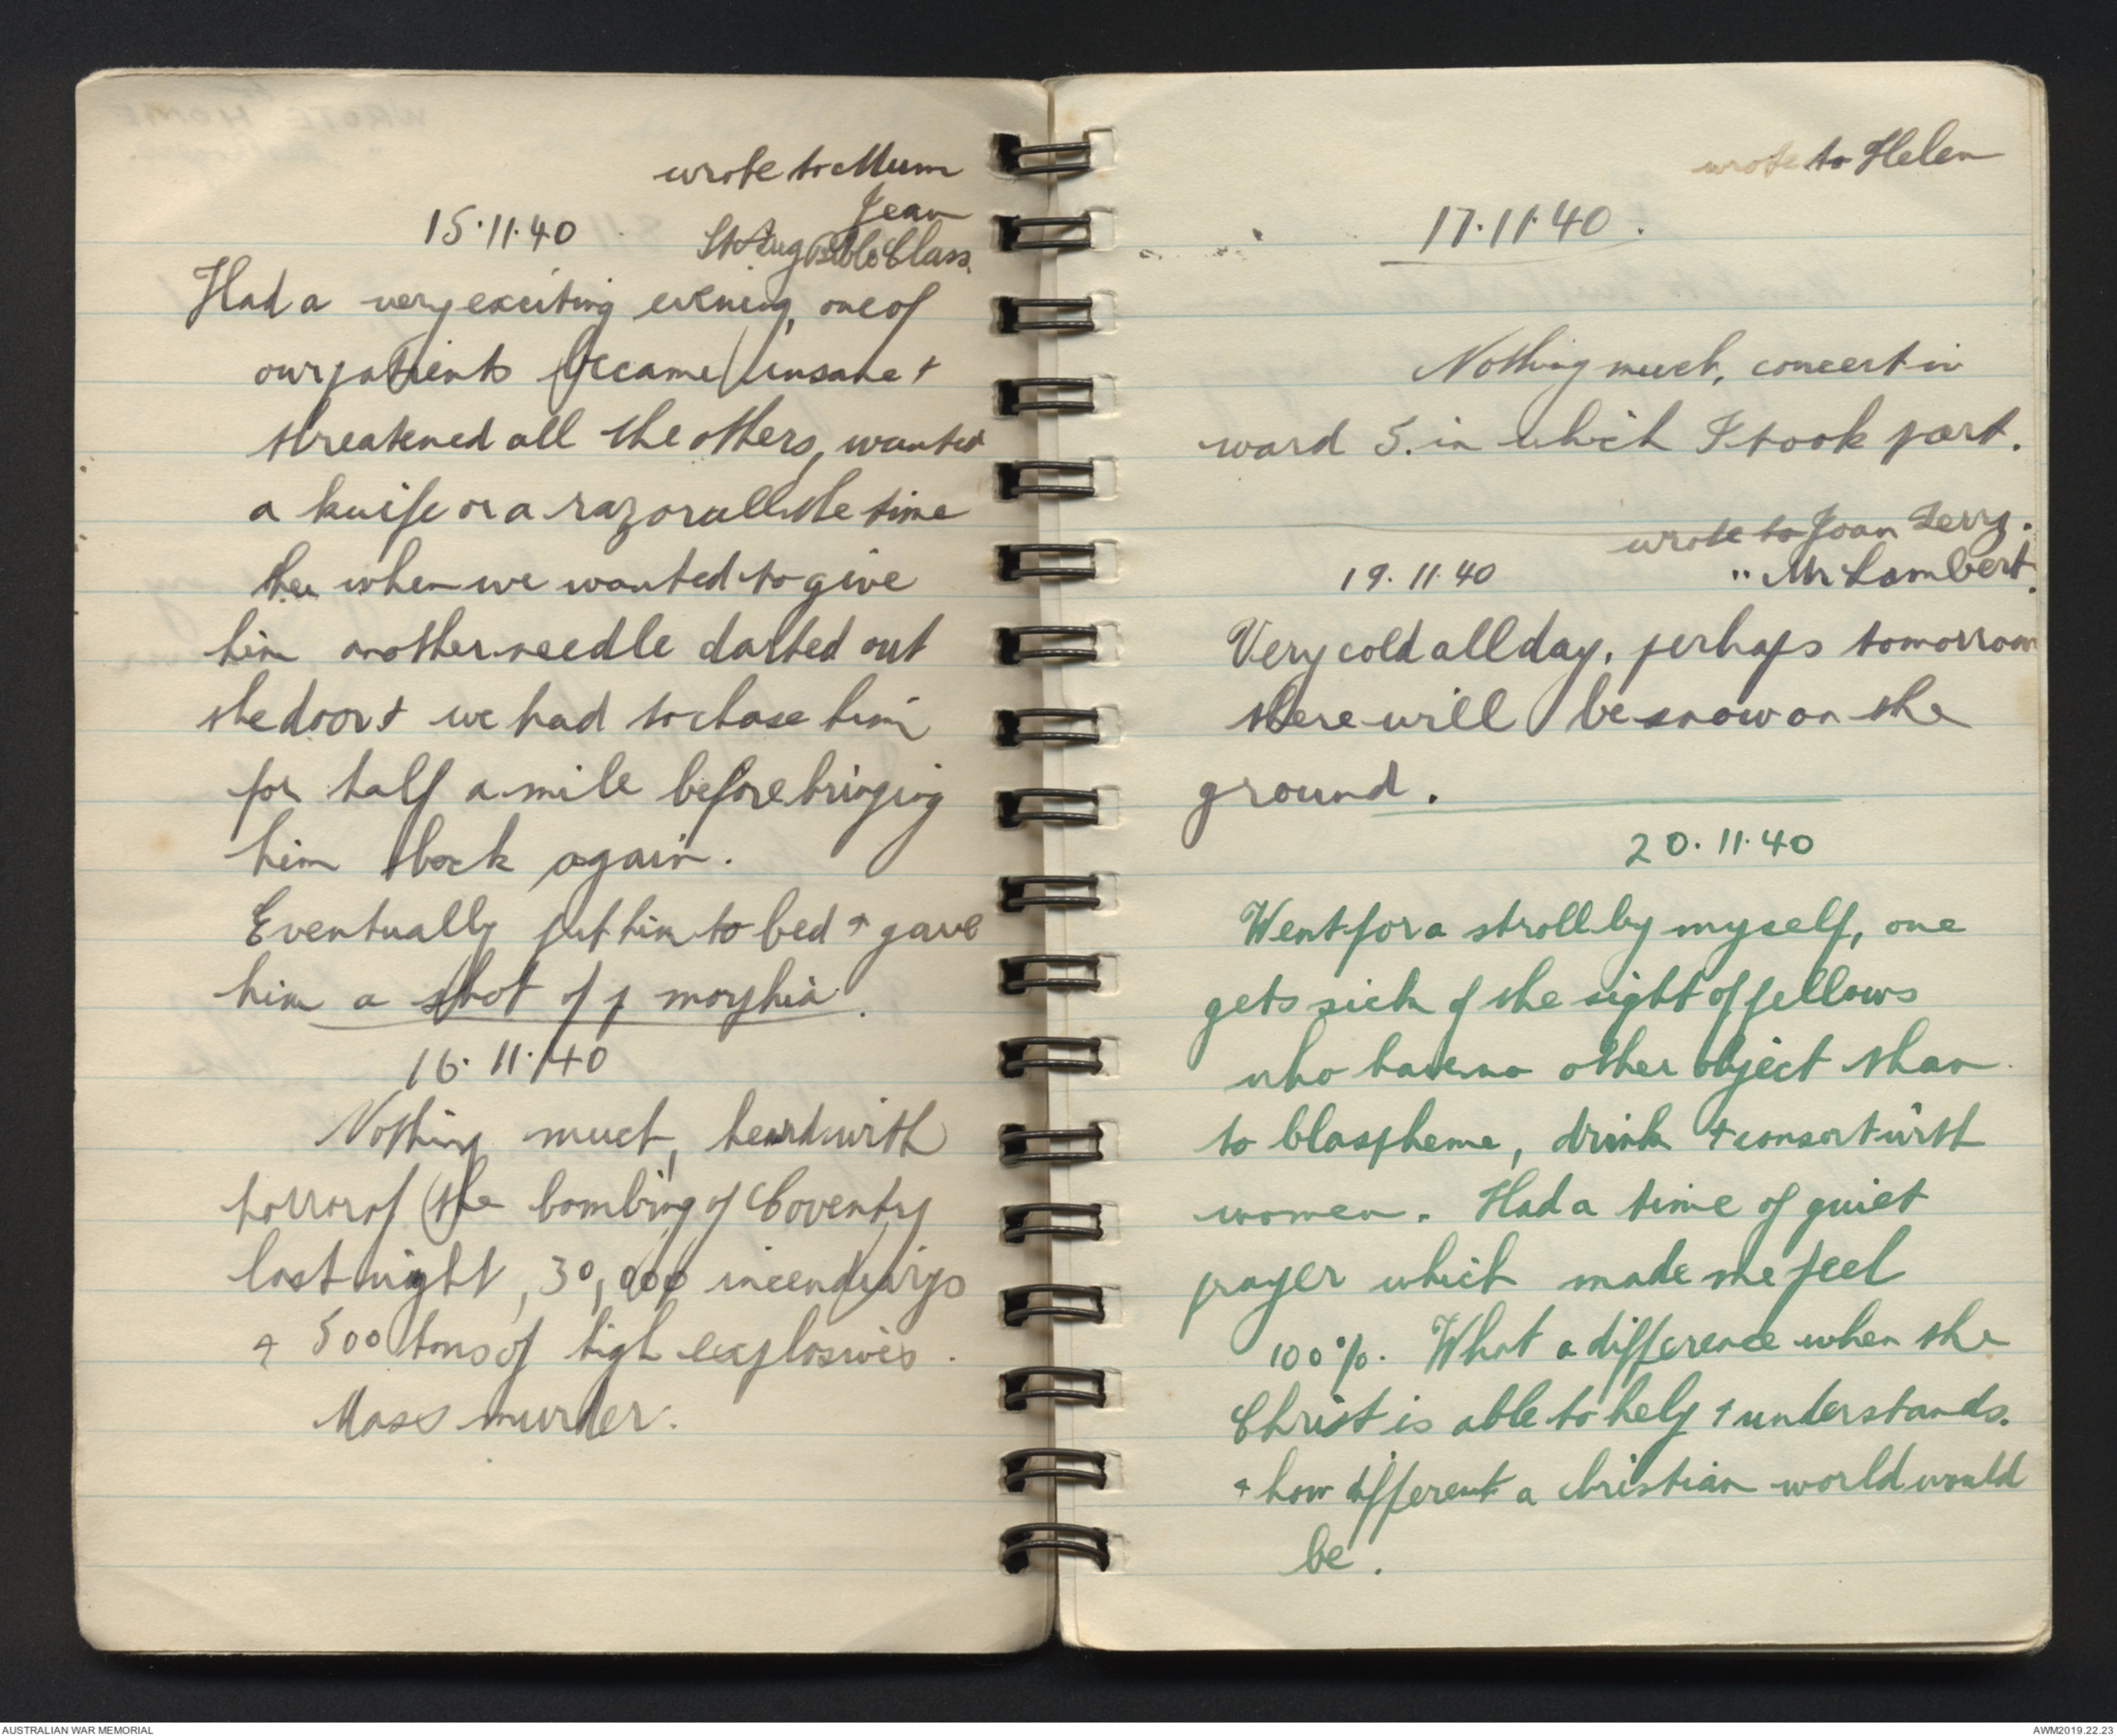 wrote to Mum
Jean
15.11.40 St Aug Bible Class.
Had a very exciting evening, one of
our patients became insane +
threatened all the others, wanted
a knife or a razor all the time
then when we wanted to give
him another needle darted out
the door + we had to chase him
for half a mile before bringing
him back again.
Eventually put him to bed + gave
him a shot of morphia.
16.11.40
Nothing much, heard with
horror of the bombing of Coventry
last night, 30,000 incendiarys
+ 500 tons of high explosives.
Mass murder.
wrote to Helen
17.11.40.
Nothing much, concert in
ward 5. in which I took part.
wrote to Joan Terry.
19.11.40 " Mr Lambert.
Very cold all day, perhaps tomorrow
there will be snow on the
ground.
20.11.40
Went for a stroll by myself, one
gets sick of the sight of fellows
who have no other object than
to blaspheme, drink + consort with
women. Had a time of quiet
prayer which made me feel
100%. What a difference when the
Christ is able to help + understands.
+ how different a christian world would
be.
AUSTRALIAN WAR MEMORIAL AWM2019.22.23